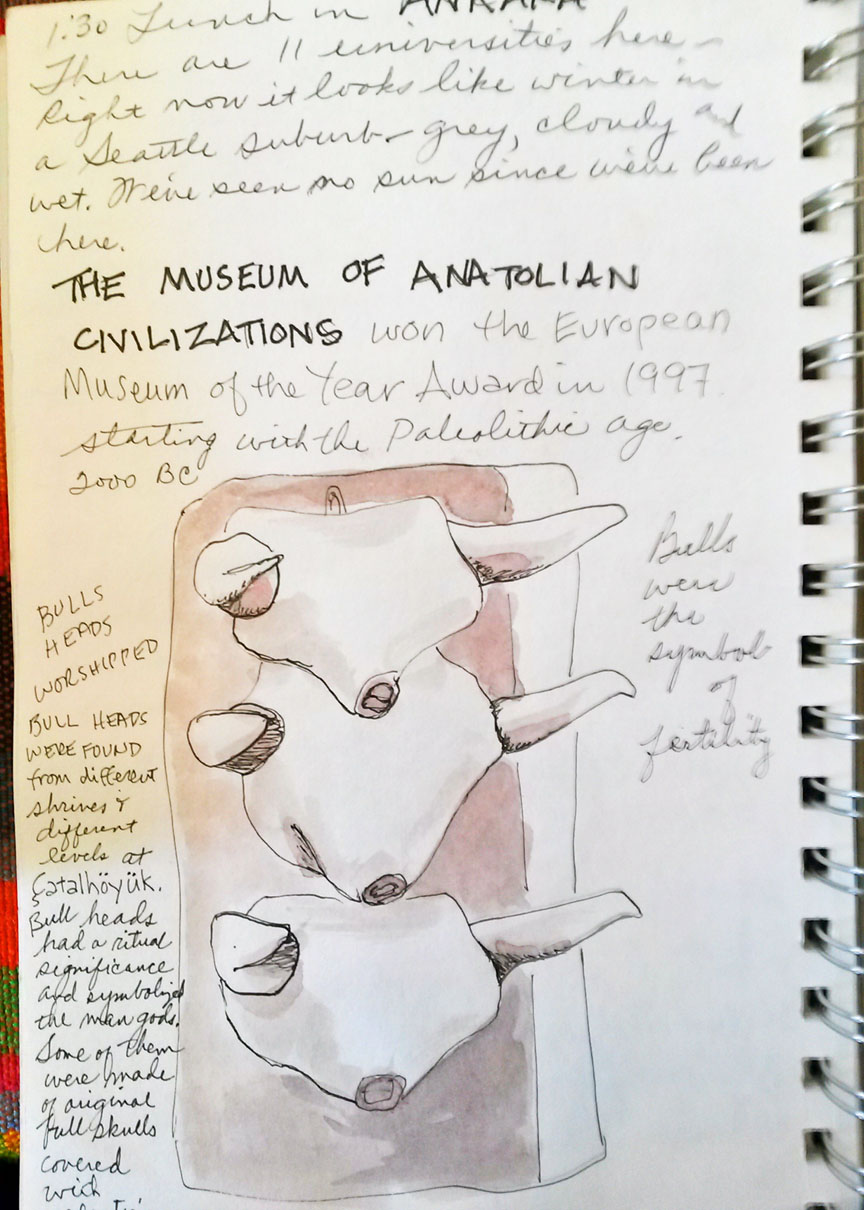 1:30 Lunch in ANKARA
There are 11 universities here –
Right now it looks like winter in
a Seattle suburb – grey, cloudy and
wet. We've seen no sun since we've been
here.
THE MUSEUM OF ANATOLIAN
CIVILIZATIONS won the European
Museum of the Year Award in 1997.
starting with the Paleolithic age.
2000 BC
BULLS
HEADS
WORSHIPPED
BULL HEADS
WERE FOUND
from different
shrines &
different
levels at
Çatalhöyük.
Bull heads
had a ritual
significance
and symbolized
the man gods.
Some of them
were made
of original
full skulls
covered
with
Bulls
were
the
symbol
of
fertility